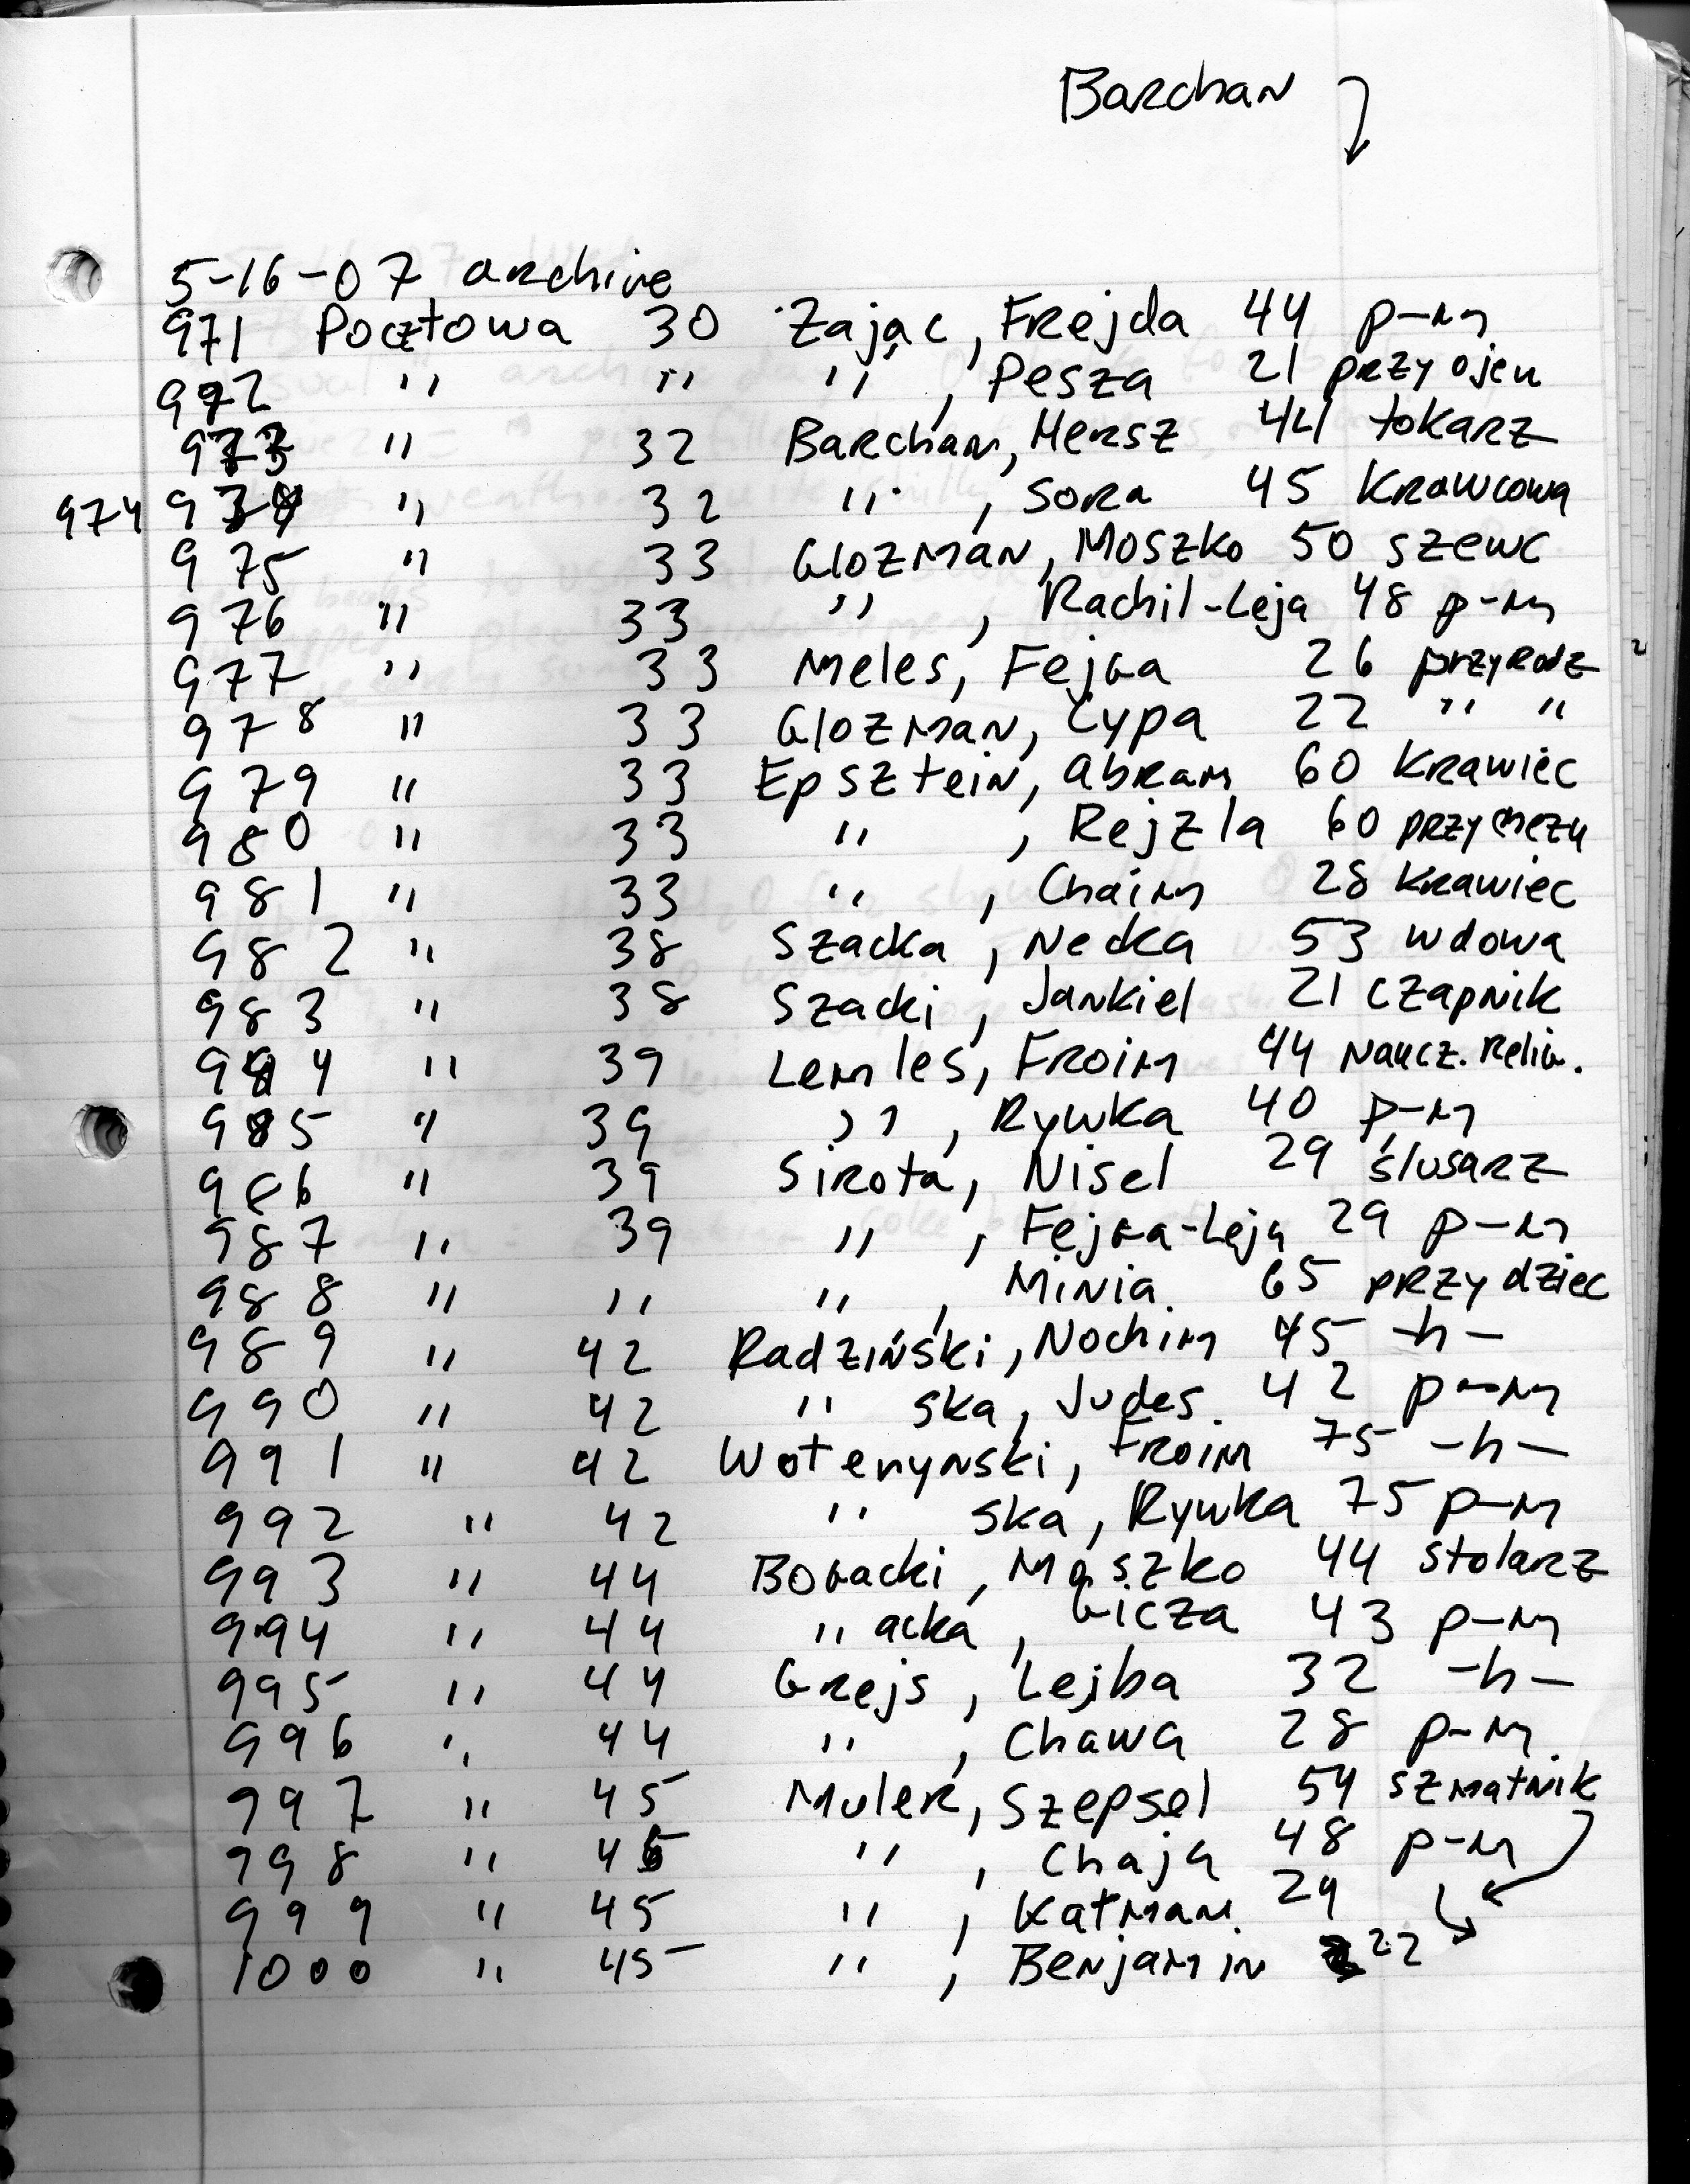 Barchan
5-16-07 archive
971 Pocztowa 30 Zając, Frejda 44 p-m
972 " " ", Pesza 21 przy ojcu
973 " 32 Barchan, Hersz 44 tokarz
974 974 " 32 ", Sora 45 Krawcowa
975 " 33 Glozman, Moszko 50 szewc
976 " 33 ", Rachil-Leja 48 p-m
977 " 33 Meles, Fejga 26 przy rodz
978 " 33 Glozman, Cypa 22 " "
979 " 33 Epsztein, Abram 60 Krawiec
980 " 33 ", Rejzla 60 przy mężu
981 " 33 ", Chaim 28 Krawiec
982 " 38 Szacka, Necka 53 wdowa
983 " 38 Szacki, Jankiel 21 czapnik
984 " 39 Lemles, Froim 44 Naucz. Relig.
985 " 39 ", Rywka 40 p-m
986 " 39 Sirota, Nisel 29 ślusarz
987 " 39 ", Fejga-Leja 29 p-m
988 " " ", Minia. 65 przy dziec
989 " 42 Radziński, Nochim 45 -h-
990 " 42 " ska, Judes. 42 p-m
991 " 42 Froim 75 -h-
992 " 42 " ska, Rywka 75 p-m
993 " 44 Bogacki, Moszko 44 stolarz
994 " 44 " acka, Gicza 43 p-m
995 " 44 Grejs, Lejba 32 -h-
996 " 44 ", Chawa 28 p-m
997 " 45 Muler, Szepsel 54 szmatnik
998 " 45 ", Chaja 48 p-m
999 " 45 ", Katman. 24
1000 " 45 ", Benjamin 22